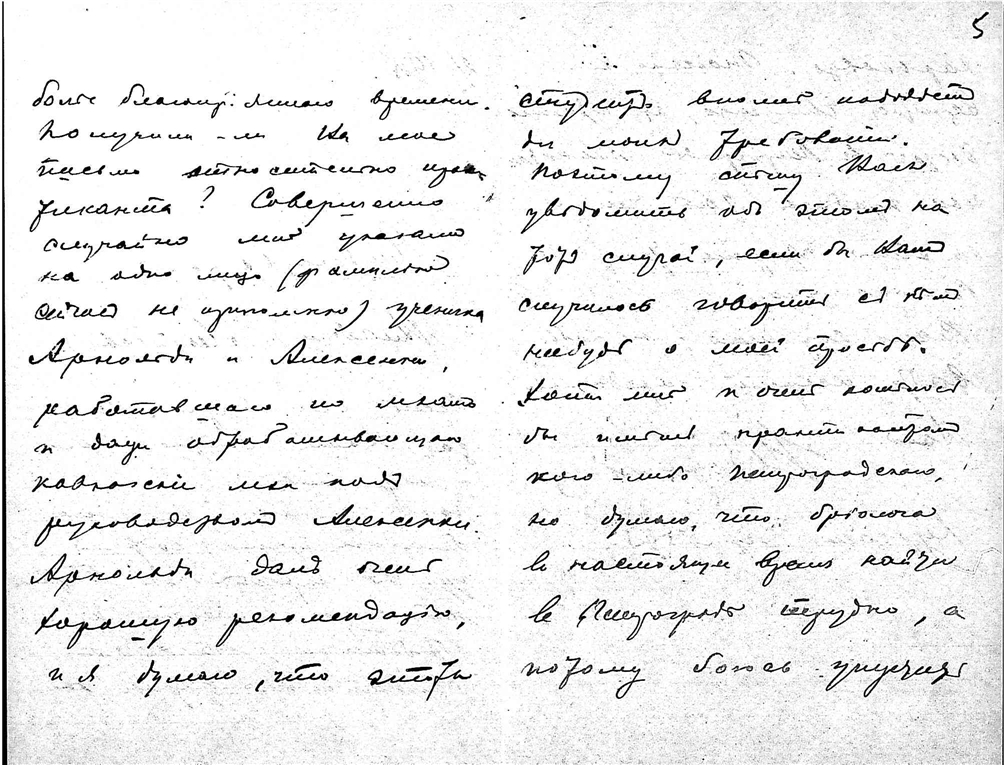 5
более благоприятнаго времени.
Получили-ли Вы мое
письмо относительно прак-
тиканта? Совершенно
случайно мнѣ указали
на одно лицо (фамилію
сейчас не припомню) ученика
Арнольди и Алексенки,
работавшаго по мхамъ
и даже обрабатывающаго
кавказскіе мхи подъ
руководствомъ Алексенки.
Арнольди далъ очень
хорошую рекомендацію,
и я думаю, что этотъ
студентъ вполнѣ подойдетъ
для моихъ требованій.
Поэтому спѣшу Васъ
увѣдомить объ этомъ на
тотъ случай, если бы Вамъ
случилось говорить съ кѣмъ
нибудь о моей просьбѣ.
Хотя мнѣ и очень хотѣлось
бы имѣть практикантомъ
кого-либо Петроградскаго,
но думаю, что бріолога
въ настоящее время найти
въ Петроградѣ трудно, а
потому боюсь упустить